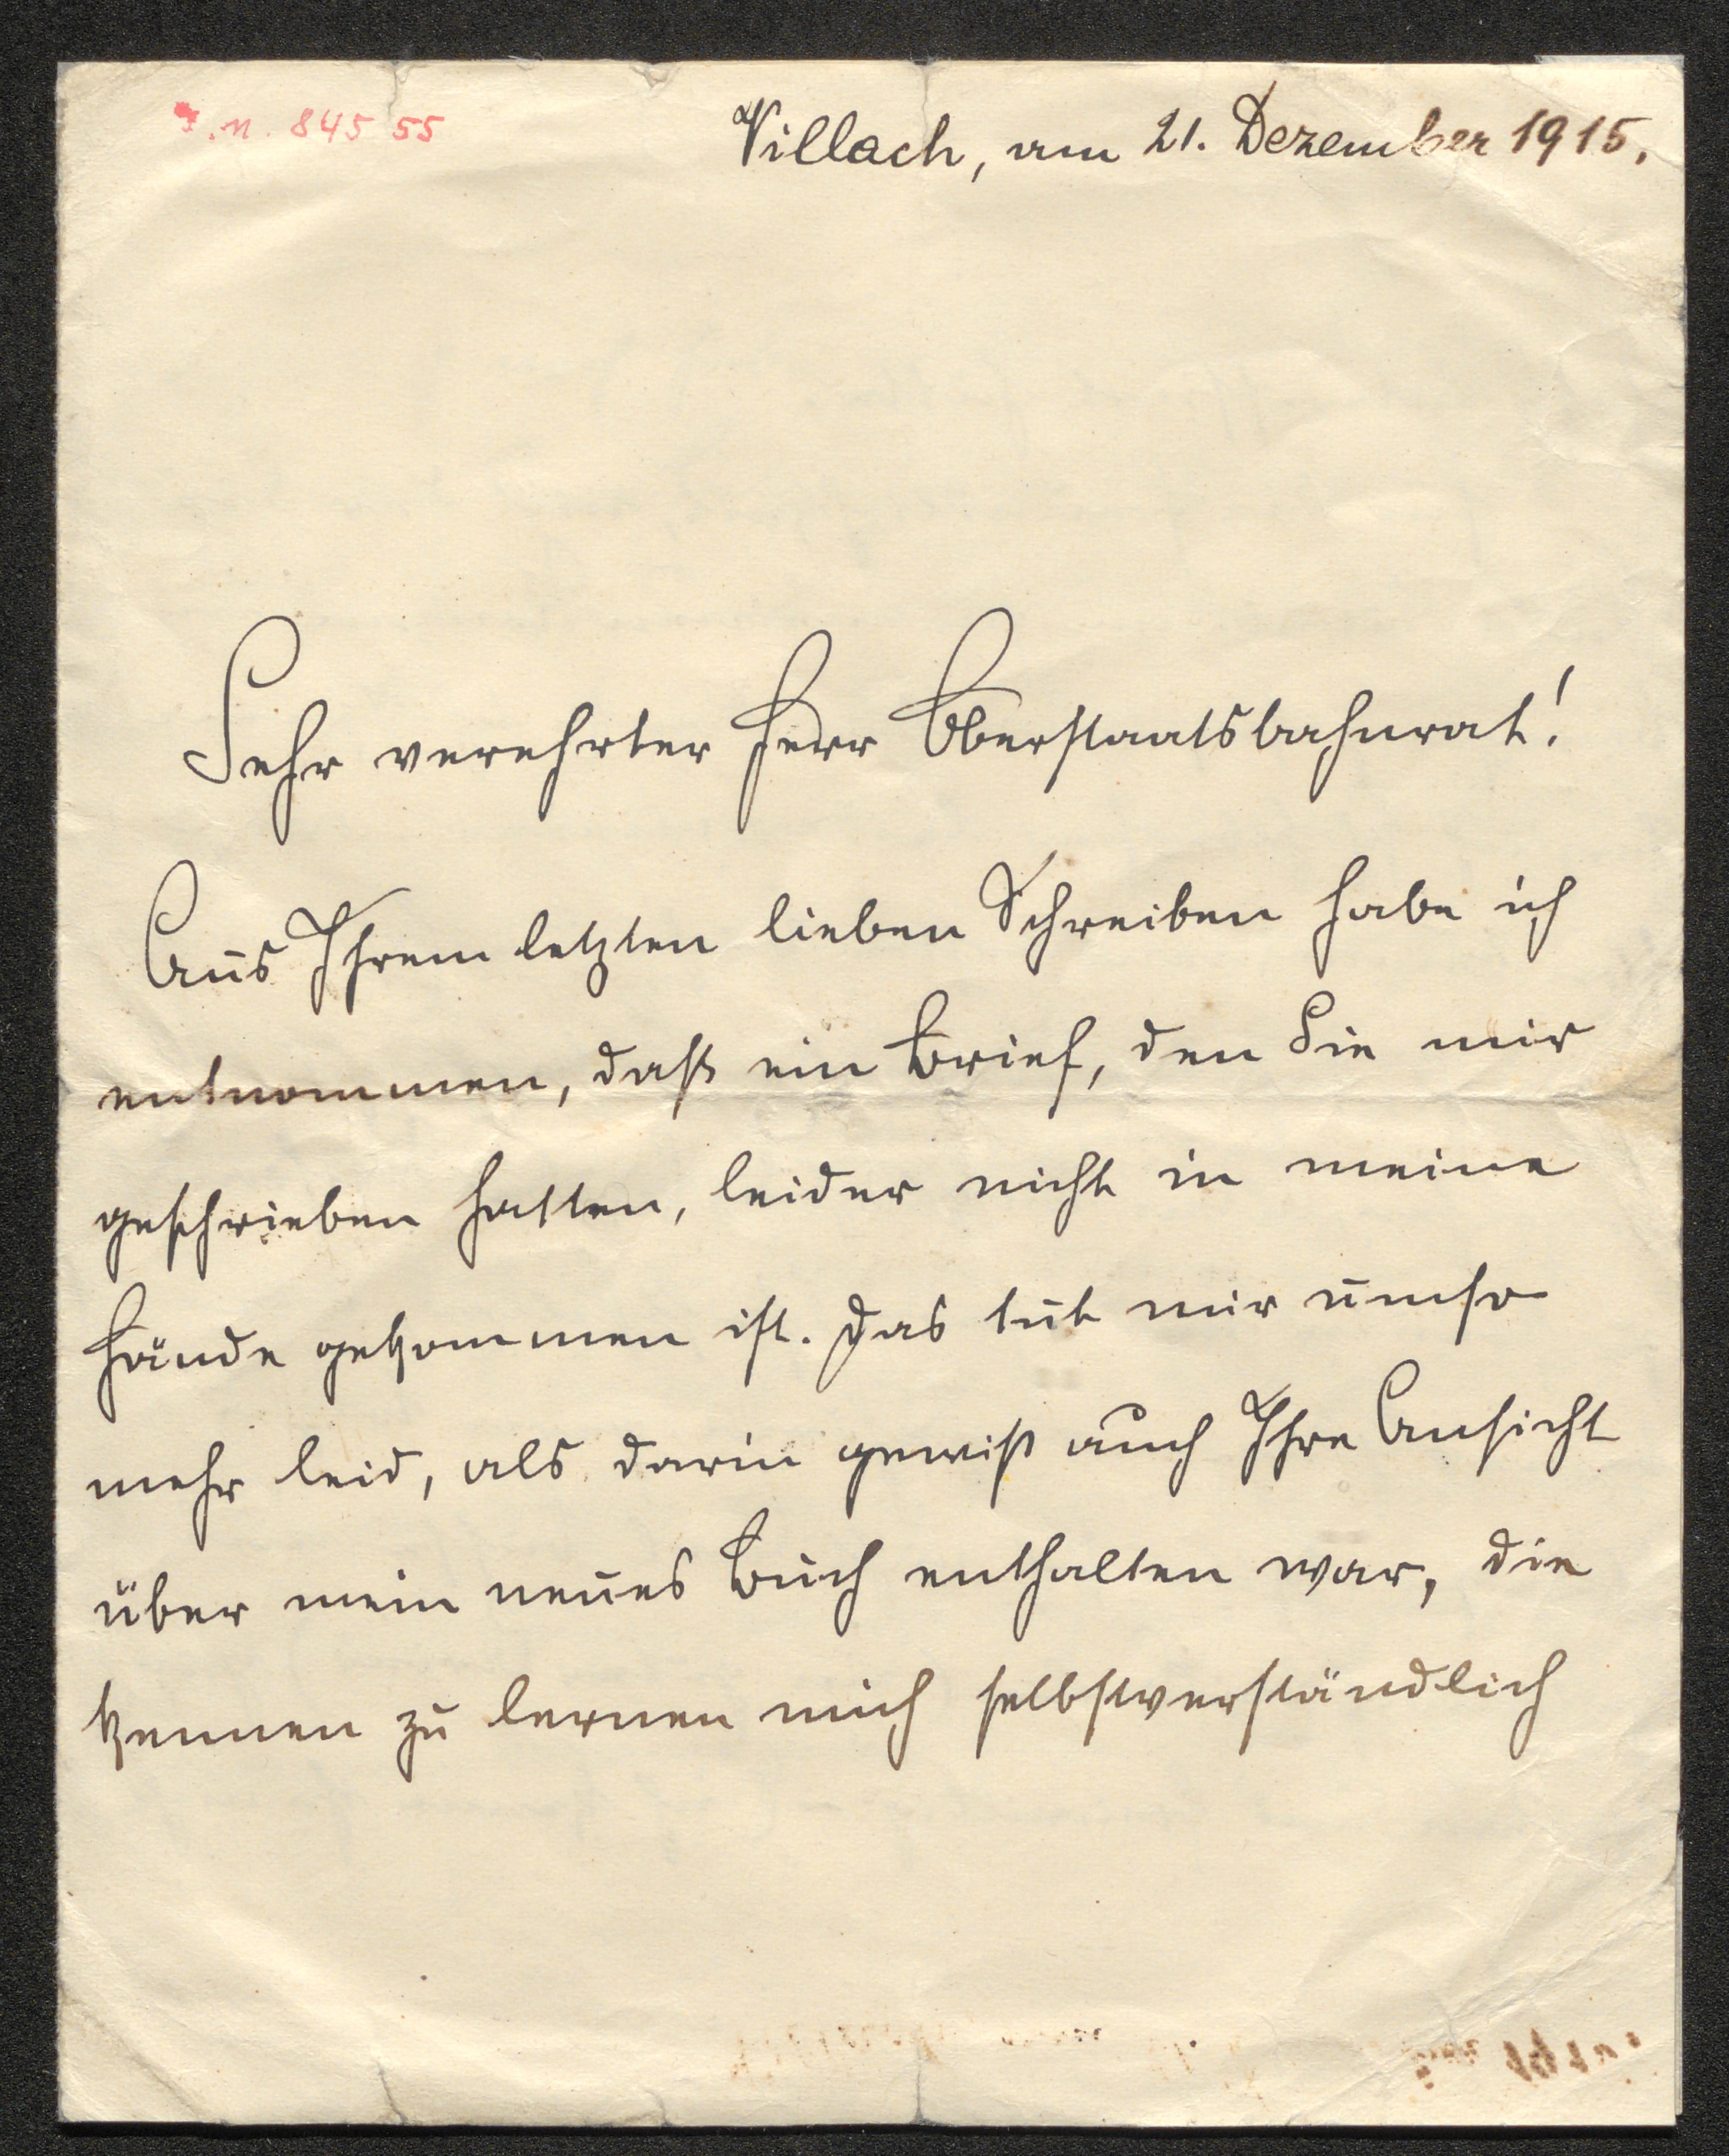 I.N. 84555
Villach, am 21. Dezember 1915.
Sehr verehrter Herr Oberstaatsbahnrat!
Aus Ihrem letzten lieben Schreiben habe ich
entnommen, daß ein Brief, den Sie mir
geschrieben hatten, leider nicht in meine
Hände gekommen ist. Das tut mir umso
mehr leid, als darin gewiß auch Ihre Ansicht
über mein neues Buch enthalten war, die
kennen zu lernen mich selbstverständlich